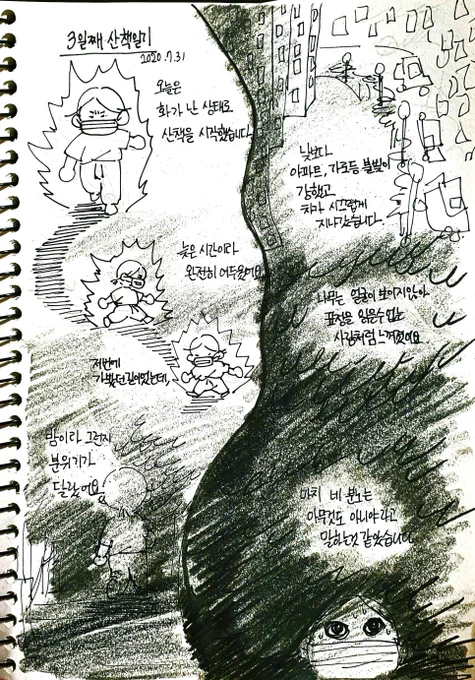 3일째 산책일기
2020.7.31
오늘은
화가 난 상태로
산책을 시작했습니다
늦은 시간이라
완전히 어두웠어요
저번에
가봤던 길이었는데,
밤이라 그런지
분위기가
달랐어요
낮보다
아파트, 가로등 불빛이
강했고
차가 시끄럽게
지나갔습니다.
나무는 얼굴이 보이지 않아
표정을 읽을 수 없는
사람처럼 느껴졌어요
마치 네 분노는
아무것도 아니야 라고
말하는것 같았습니다.